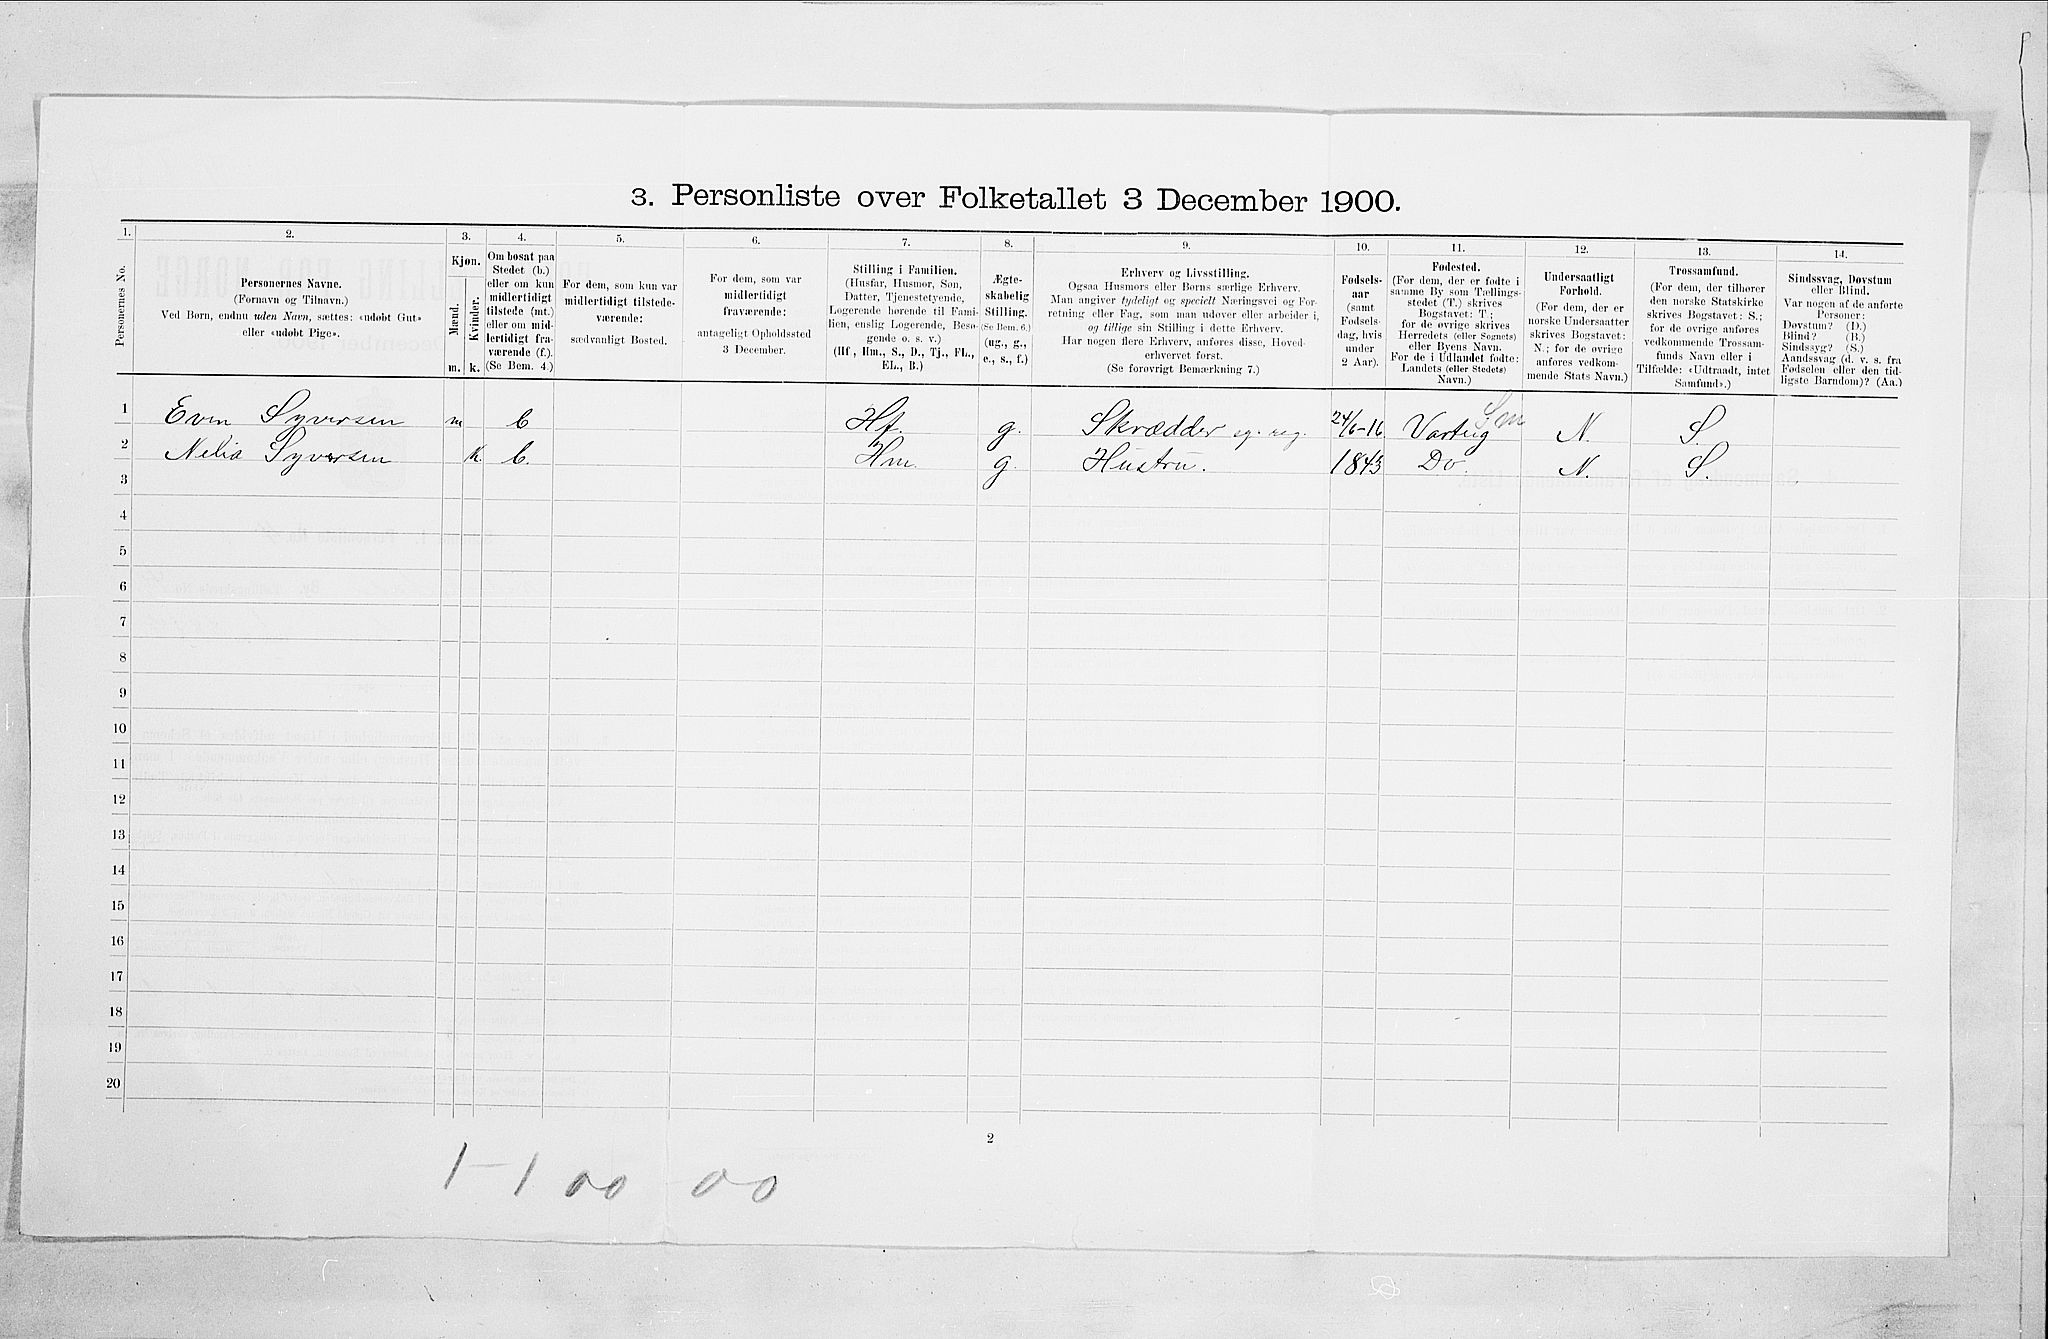 3. Personliste over Folketallet 3 December 1900.
1. 2. 3. 4. 5. 6. 7. 8. 9. 10. 11. 12. 13. 14.
Personernes No.
Personernes Navne.
(Fornavn og Tilnavn.)
Ved Børn, endnu uden Navn, sættes: «udøbt Gut»
eller «udøbt Pige».
Kjøn.
Mænd.
Kvinder.
m. k.
Om bosat paa
Stedet (b.)
eller om kun
midlertidigt
tilstede (mt.)
eller om mid-
lertidigt fra-
værende (f.).
(Se Bem. 4.)
For dem, som kun var
midlertidigt tilstede-
værende:
sædvanligt Bosted.
For dem, som var
midlertidigt
fraværende:
antageligt Opholdssted
3 December.
Stilling i Familien.
(Husfar, Husmor, Søn,
Datter, Tjenestetyende,
Logerende hørende til Fami-
lien, enslig Logerende, Besø-
gende o. s. v.)
(Hf., Hm., S., D., Tj., FL.,
EL., B.)
Ægte-
skabelig
Stilling.
(Se Bem. 6.)
(ug., g.,
e., s., f.)
Erhverv og Livsstilling.
Ogsaa Husmors eller Børns særlige Erhverv.
Man angiver tydeligt og specielt Næringsvei og For-
retning eller Fag, som man udøver eller arbeider i,
og tillige sin Stilling i dette Erhverv.
Har nogen flere Erhverv, anføres disse, Hoved-
erhvervet først.
(Se forøvrigt Bemærkning 7.)
Fødsels-
aar
(samt
Fødsels-
dag, hvis
under
2 Aar).
Fødested.
(For dem, der er fødte i
samme By som Tællings-
stedet (T.) skrives
Bogstavet: T.;
for de øvrige skrives
Herredets (eller Sognets)
eller Byens Navn.
For de i Udlandet fødte:
Landets (eller Stedets)
Navn.)
Undersaatligt
Forhold.
(For dem, der er
norske Undersaatter
skrives Bogstavet:
N.; for de øvrige
anføres vedkom-
mende Stats Navn.)
Trossamfund.
(For dem, der tilhører
den norske Statskirke
skrives Bogstavet: S.;
for de øvrige anføres
vedkommende Trossam-
funds Navn eller i
Tilfælde: «Udtraadt, intet
Samfund».)
Sindssvag, Døvstum
eller Blind.
Var nogen af de anførte
Personer:
Døvstum? (D.)
Blind? (B.)
Sindssyg? (S.)
Aandssvag (d. v. s. fra
Fødselen eller den tid-
ligste Barndom)? (Aa.)
1 Even Syversen m b Hf. g. Skrædder eg. reg. 24/6-16 Varteig Sm N. S.
2 Nelia Syversen K. b. Hm. g. Hustru. 1843 Do. N. S.
3
4
5
6
7
8
9
10
11
12
13
14
15
16
17
18
19
20
2
1-1 00 00